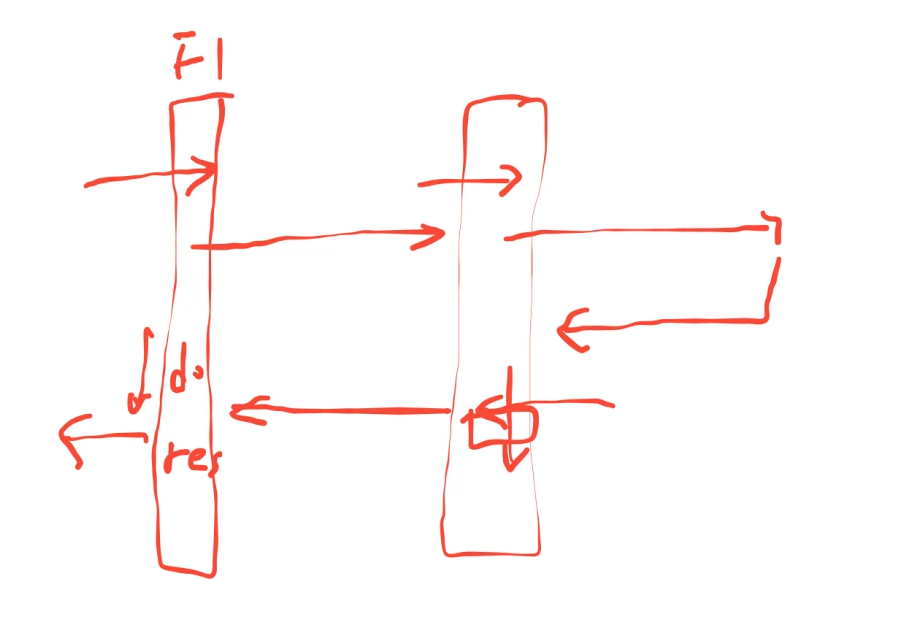 F1
do
res